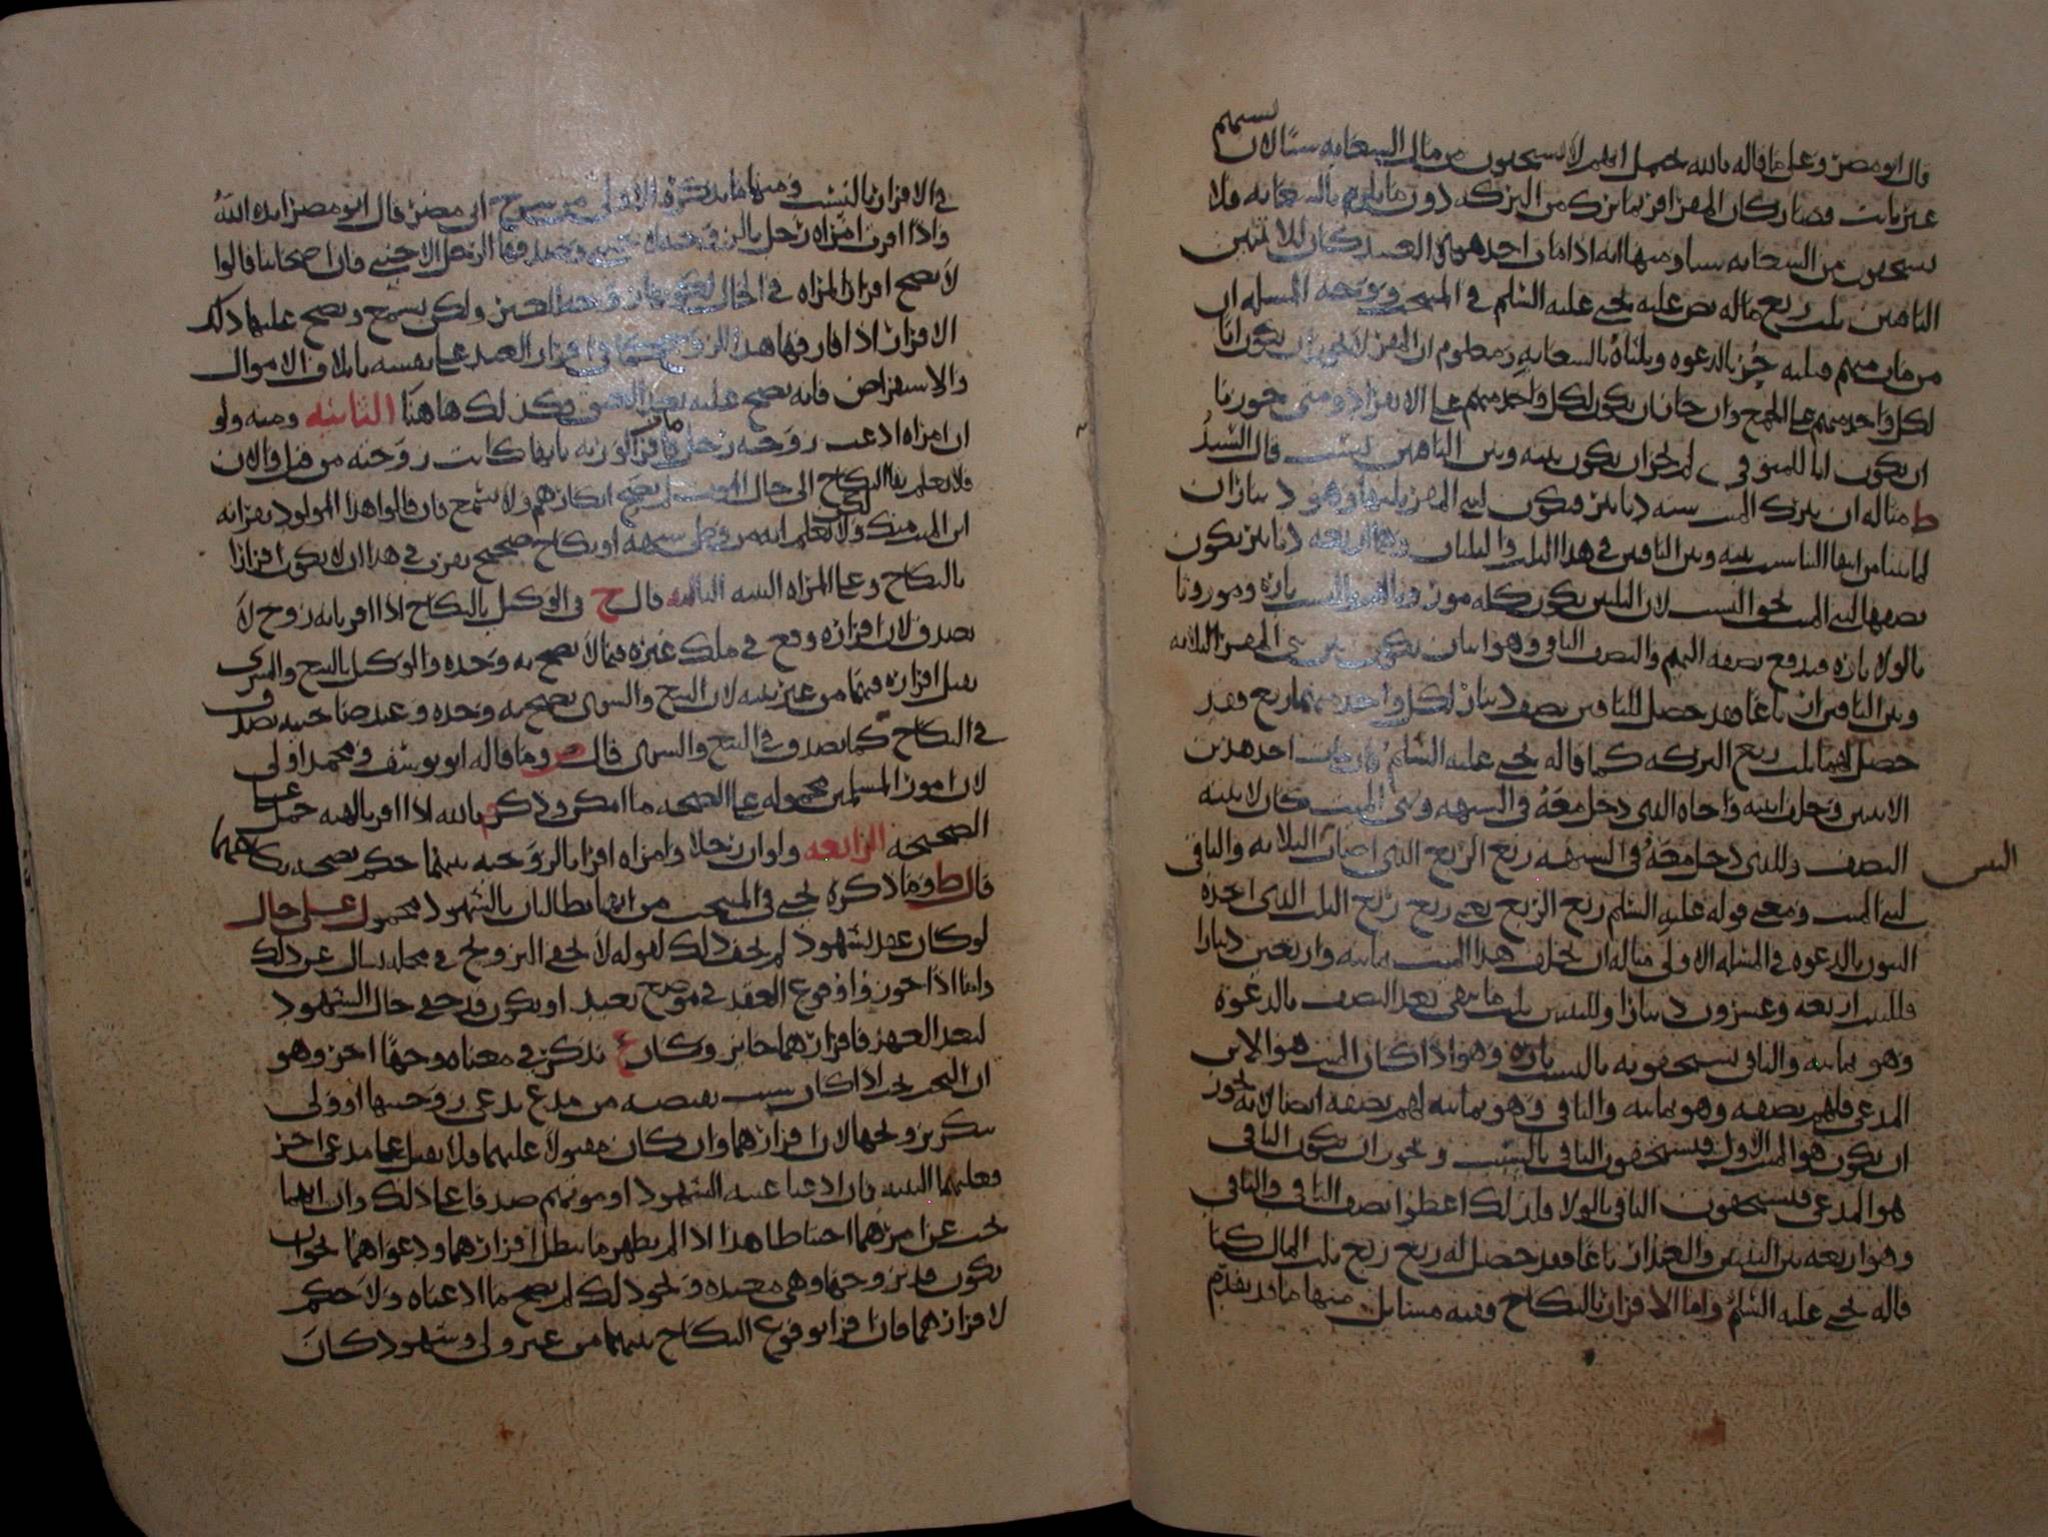 قال ابو مضر وعلى ما قاله بالله يحمل انهم لا يستحقون من مال السعايه شيا لان نسبهم
غير ثابت فصار كان المقر اقر بما ترك من التركه دون ما يلزم بالسعايه فلا
يستحقون من السعايه شيا ومنها انه اذا مات احد هوفي العبيد كان للاثنين
الباقيين ثلث ربع ماله نص عليه يحيى عليه السلم في المنتخب ووجه المسله ان
من مات منهم فثلثه حر بالدعوه وثلثاه بالسعايه ومعلوم ان المقر لا يجوز ان يكون ابا
لكل واحد منهم على الجمع وان جاز ان يكون لكل واحد منهم على الانفراد ومتى جوزنا
ان يكون ابا للمتوفى لم يجز ان يكون بينه وبين الباقيين نسب قال السيد
ط مثاله ان يترك الميت سته دنانير فيكون لبني المقر ثلثها وهو ديناران
لما بينا من انتفا النسب بينه وبين الباقين في هذا الثلث والثلثان وهما اربعه دنانير يكون
نصفها لبني الميت بحق النسب لان الثلثين يكون كله موروثا بالنسب تاره وموروثا
بالولا تاره فيدفع نصفه اليهم والنصف الباقي وهو ديناران يكون بين بني المقر الثلاثه
وبين الباقين ارباعا فقد حصل للباقين نصف دينار لكل واحد منهما ربع فقد
حصل لهما ثلث ربع التركه كما قاله يحيى عليه السلم فان مات احد هذين
الاثنين وخلف ابنيه واخاه الذي دخل معه في الشبهه وبني الميت كان لابنيه
النصف وللذي دخل معه في الشبهه ربع الربع الذي اصاب الثلاثه والباقي
لبني الميت ومعنى قوله عليه السلم ربع الربع يعني ربع ربع الثلث الذي اخذه
البنون بالدعوه في المسله الاولى مثاله ان يخلف هذا الميت ثمانيه واربعين دينارا
فللبنت اربعه وعشرون دينارا وللبنين ثلث ما بقي بعد النصف بالدعوه
وهو ثمانيه والباقي يستحقونه بالنسب تاره وهو اذا كان الميت هو الابن
المدعى فلهم نصفه وهو ثمانيه والباقي وهو ثمانيه لهم نصفه ايضا لانه يجوز
ان يكون هو الميت الاول فيستحقون الباقي بالنسب ويجوز ان يكون الباقي
هو المدعى فيستحقون الباقي بالولا فلذلك اعطوا نصف الباقي والباقي
وهو اربعه بين البنين والعبد ارباعا فقد حصل له ربع ربع ثلث المال كما
قاله يحيى عليه السلم واما الاقرار بالنكاح ففيه مسايل منها ما قد تقدم
في الاقرار بالنسب ومنها ما يذكر الاولى من شرح ابي مضر قال ابو مضر ايده الله
واذا اقرت امراه رجل بالزوجيه وصدقها الرجل الاجنبي فان اصحابنا قالوا
لا يصح اقرار المراه في الحال لحق زوجها المعين ولكن يسمع ويصح عليها ذلك
الاقرار اذا فارقها هذا الزوج كما في اقرار العبد على نفسه باتلاف الاموال
والاستقراض فانه يصح عليه بعد العتق فكذلك هاهنا الثانيه ومنه ولو
ان امراه ادعت زوجيه رجل مات فاقر الورثه بانها كانت زوجته من قبل والان
فلا نعلم بقا النكاح الى حال الموت لم يصح انكارهم ولا يسمع فان قالوا هذا المولود نقر انه
ابن الميت منك ولكن لا نعلم انه من وطي شبهه او نكاح صحيح نقر في هذا ان لا يكون اقرارا
بالنكاح وعلى المراه البينه الثالثه قال ح في الوكيل بالنكاح اذا اقر بانه زوج لا
يصدق لان اقراره وقع في ملك غيره فيما لا يصح به وحده والوكيل بالبيع والشرى
يقبل اقراره فيهما من غير بينه لان البيع والشرى يصح به وحده وعند صاحبيه يصدق
في النكاح كما يصدق في البيع والشرى قال وما قاله ابو يوسف ومحمد اولى
لان امور المسلمين محموله على الصحه ما امكن وذكر م بالله اذا اقر بالهبه حمل على
الصحيحه الرابعه ولو ان رجلا وامراه اقرا بالزوجيه بينهما حكم بصحه نكاحهما
قال ط وما ذكره يحيى في المنتخب من انهما يطالبان بالشهود محمول على حال
لو كان عقد بشهود لم يخف ذلك لقوله لا يخفى التزويج في محله يسال عن ذلك
واما اذا جوزوا وقوع العقد في موضع بعيد او يكون قد خفي حال الشهود
لبعد العهد فاقرارهما جايز وكان ع يذكر في معناه وجها اخر وهو
ان البحث يجب اذا كان بسبب يقتضيه من مدع يدعي زوجيتها او ولي
ينكر تزويجها لان اقرارهما وان كان مقبولا عليهما فلا يقبل على مدعي اخر
فعليهما البينه فان ادعيا غيبه الشهود او موتهم صدقا على ذلك وان اتهما
بحث عن امرهما احتياطا هذا اذا لم يظهر ما يبطل اقرارهما ودعواهما نحو ان
يكون قد تزوجها وهي معتده ونحو ذلك لم يصح ما ادعياه ولا حكم
لاقرارهما فان اقرا بوقوع النكاح بينهما من غير ولي وشهود كان